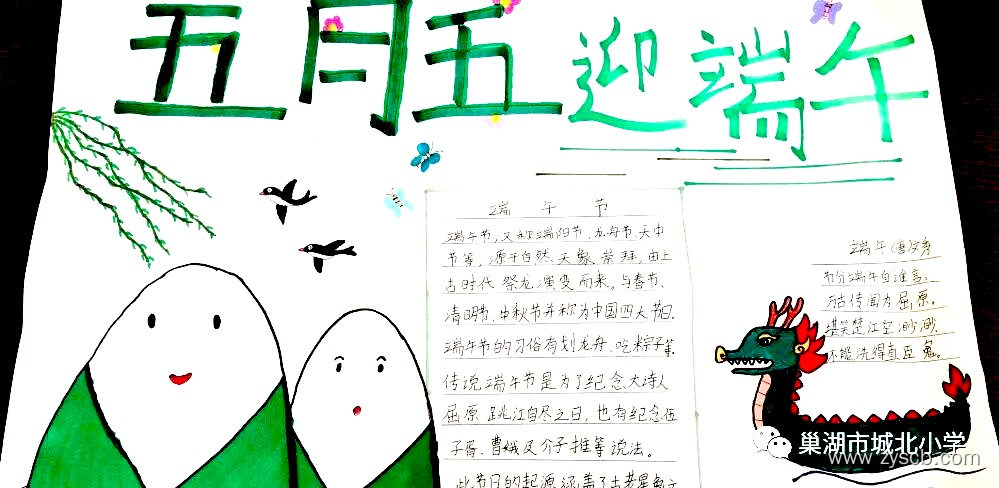 五月五迎端午
端午节
端午节,又称端阳节、龙舟节、天中
节等,源于自然天象崇拜,由上
古时代祭龙演变而来。与春节、
清明节、中秋节并称为中国四大节日.
端午节的习俗有划龙舟、吃粽子等.
传说端午节是为了纪念大诗人
屈原跳江自尽之日,也有纪念伍
子胥、曹娥及介子推等说法。
此节日的起源涵盖了古老星象
端午(唐)文秀
节分端午自谁言,
万古传闻为屈原。
堪笑楚江空渺渺,
不能洗得直臣冤。
巢湖市城北小学
www.zyscb.com